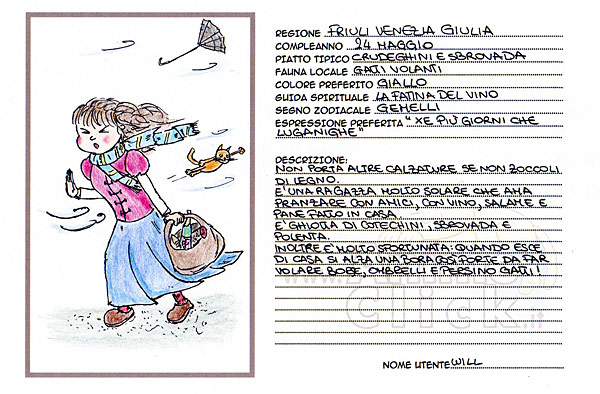 REGIONE FRIULI VENEZIA GIULIA
COMPLEANNO 24 MAGGIO
PIATTO TIPICO CRUDEGHINI E SBROVADA
FAUNA LOCALE GATTI VOLANTI
COLORE PREFERITO GIALLO
GUIDA SPIRITUALE LA FATINA DEL VINO
SEGNO ZODIACALE GEMELLI
ESPRESSIONE PREFERITA "XE PIÙ GIORNI CHE
LUGANIGHE"
DESCRIZIONE:
NON PORTA ALTRE CALZATURE SE NON ZOCCOLI
DI LEGNO.
E' UNA RAGAZZA MOLTO SOLARE CHE AMA
PRANZARE CON AMICI, CON VINO, SALAME E
PANE FATTO IN CASA.
E' GHIOTTA DI COTECHINI, SBROVADA E
POLENTA.
INOLTRE E' MOLTO SFORTUNATA: QUANDO ESCE
DI CASA SI ALZA UNA BORA COSÌ FORTE DA FAR
VOLARE BORSE, OMBRELLI E PERSINO GATTI!
Click.it
NOME UTENTE WILL